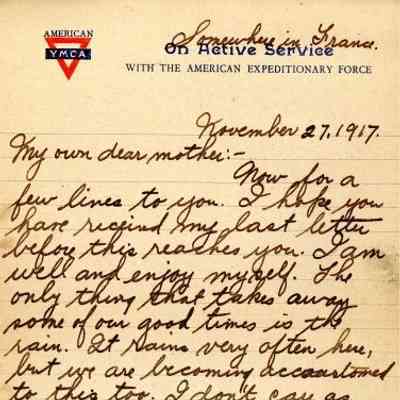 AMERICAN
YMCA
Somewhere in France.
On Active Service
WITH THE AMERICAN EXPEDITIONARY FORCE
November 27, 1917.
My own dear mother:-
Now for a
few lines to you. I hope you
have receind my last letter
before this reaches you. I am
well and enjoy myself. The
only thing that takes away
some of our good times is the
rain. It rains very often here,
but we are becoming accustomed
to this too. I don't say as